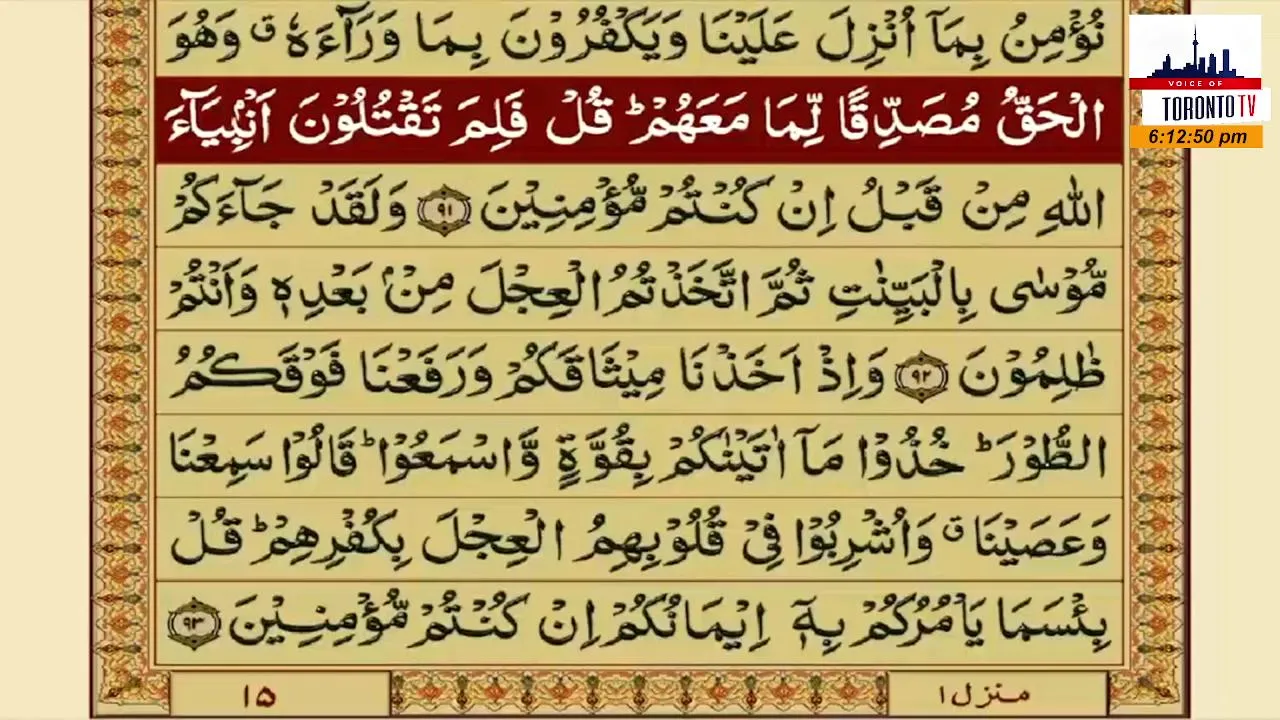 نُؤْمِنُ بِمَآ اُنْزِلَ عَلَيْنَا وَيَكْفُرُوْنَ بِمَا وَرَآءَهٗ ۗ وَهُوَ
الْحَقُّ مُصَدِّقًا لِّمَا مَعَهُمْ ؕ قُلْ فَلِمَ تَقْتُلُوْنَ اَنْۢبِيَآءَ
اللهِ مِنْ قَبْلُ اِنْ كُنْتُمْ مُّؤْمِنِيْنَ ۹۱ وَلَقَدْ جَآءَكُمْ
مُّوْسٰى بِالْبَيِّنٰتِ ثُمَّ اتَّخَذْتُمُ الْعِجْلَ مِنْۢ بَعْدِهٖ وَاَنْتُمْ
ظٰلِمُوْنَ ۹۲ وَاِذْ اَخَذْنَا مِيْثَاقَكُمْ وَرَفَعْنَا فَوْقَكُمُ
الطُّوْرَ ؕ خُذُوْا مَآ اٰتَيْنٰكُمْ بِقُوَّةٍ وَّاسْمَعُوْا ؕ قَالُوْا سَمِعْنَا
وَعَصَيْنَا ۗ وَاُشْرِبُوْا فِيْ قُلُوْبِهِمُ الْعِجْلَ بِكُفْرِهِمْ ؕ قُلْ
بِئْسَمَا يَاْمُرُكُمْ بِهٖٓ اِيْمَانُكُمْ اِنْ كُنْتُمْ مُّؤْمِنِيْنَ ۹۳
منزل ۱
۱۵
VOICE OF
TORONTO TV
6:12:50 pm